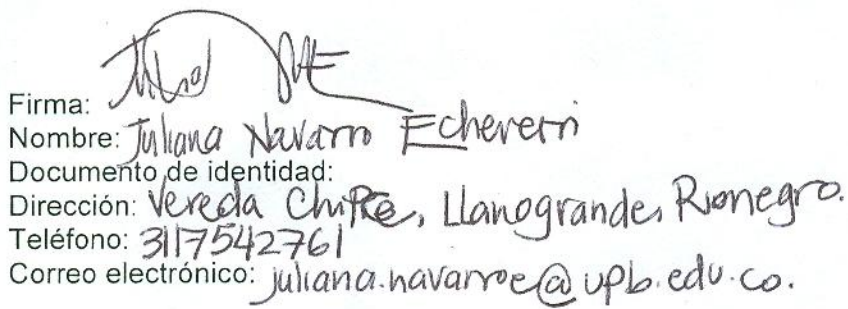 Firma:
Nombre: Juliana Navarro Echeverri
Documento de identidad:
Dirección: Vereda Chipre, Llanogrande, Rionegro.
Teléfono: 3117542761
Correo electrónico: juliana.navarroe@upb.edu.co.